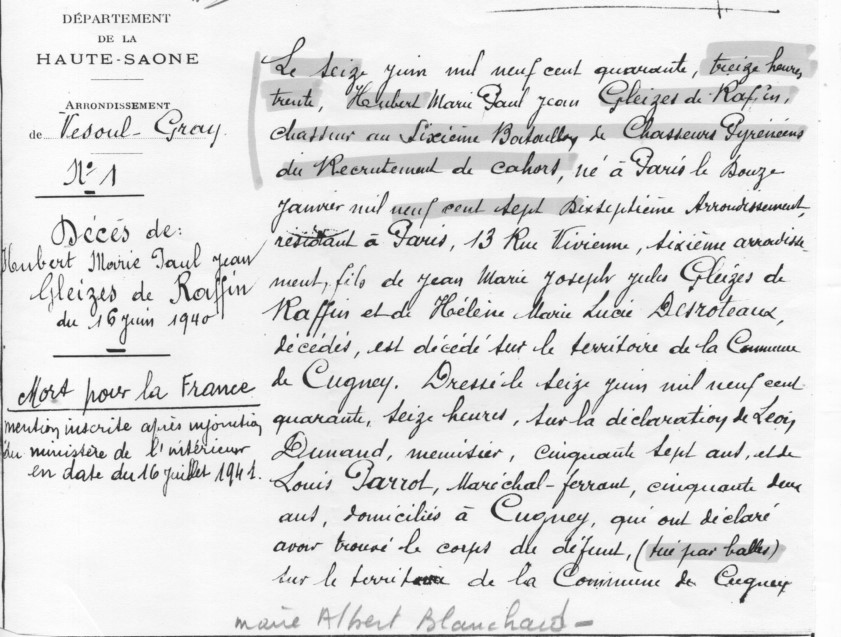 DÉPARTEMENT
DE LA
HAUTE-SAONE
ARRONDISSEMENT
de Vesoul-Gray
N° 1
Décès de:
Hubert Marie Paul Jean
Gleizes de Raffin
du 16 juin 1940
Mort pour la France
mention inscrite après injonction
du ministère de l'intérieur
en date du 16 juillet 1941.
Le seize juin mil neuf cent quarante, treize heures
trente, Hubert Marie Paul Jean Gleizes de Raffin,
chasseur au Sixième Bataillon de Chasseurs Pyrénéens
du Recrutement de cahors, né à Paris le Douze
janvier mil neuf cent sept Dixseptième Arrondissement,
résidant à Paris, 13 Rue Vivienne, sixième arrondisse-
ment, fils de Jean Marie Joseph Jules Gleizes de
Raffin et de Hélène Marie Lucie Desroteaux,
décédés, est décédé sur le territoire de la Commune
de Cugney. Dressé le seize juin mil neuf cent
quarante, seize heures, sur la déclaration de Léon
Dunand, menuisier, cinquante sept ans, et de
Louis Parrot, Maréchal-ferrant, cinquante deux
ans, domiciliés à Cugney, qui ont déclaré
avoir trouvé le corps du défunt, (tué par balles)
sur le territoire de la Commune de Cugney
maire Albert Blanchard -